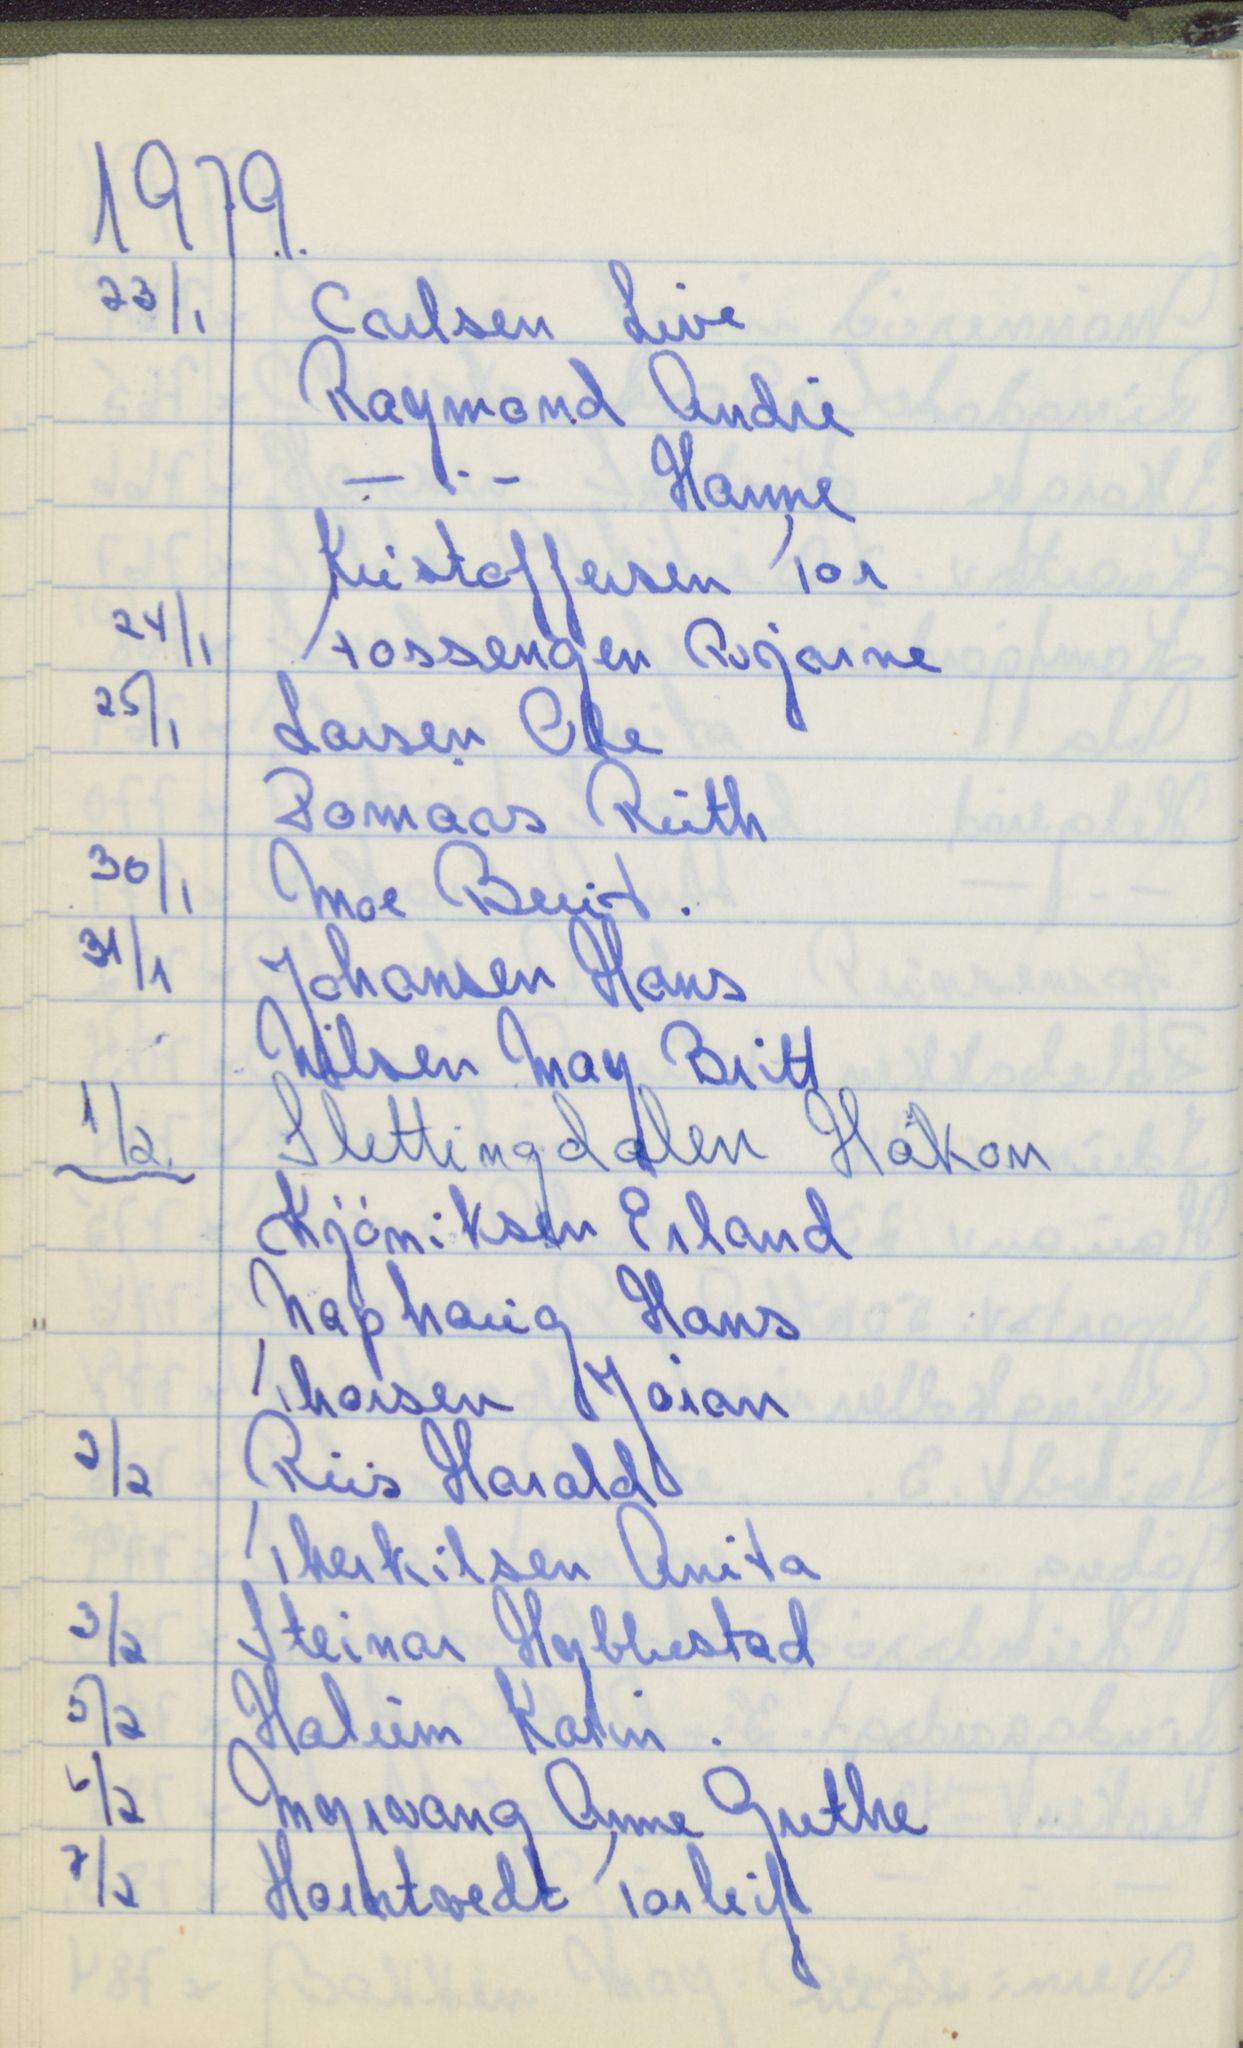 1979.
23/1 Carlsen Live
Raymond André
— " — Hanne
Kristoffersen Tor
24/1 Fossengen Bjarne
25/1 Larsen Ole
Bomaas Ruth
30/1 Moe Berit.
31/1 Johansen Hans
Nilsen May Britt
1/2 Slettingdalen Håkon
Kjöniksen Erland
Naphaug Hans
Thorsen Göran
2/2 Riis Harald
Therkilsen Anita
3/2 Steinar Hybbestad
5/2 Halum Karin.
6/2 Myrvang Anne Grethe
7/2 Hørntvedt Torleif